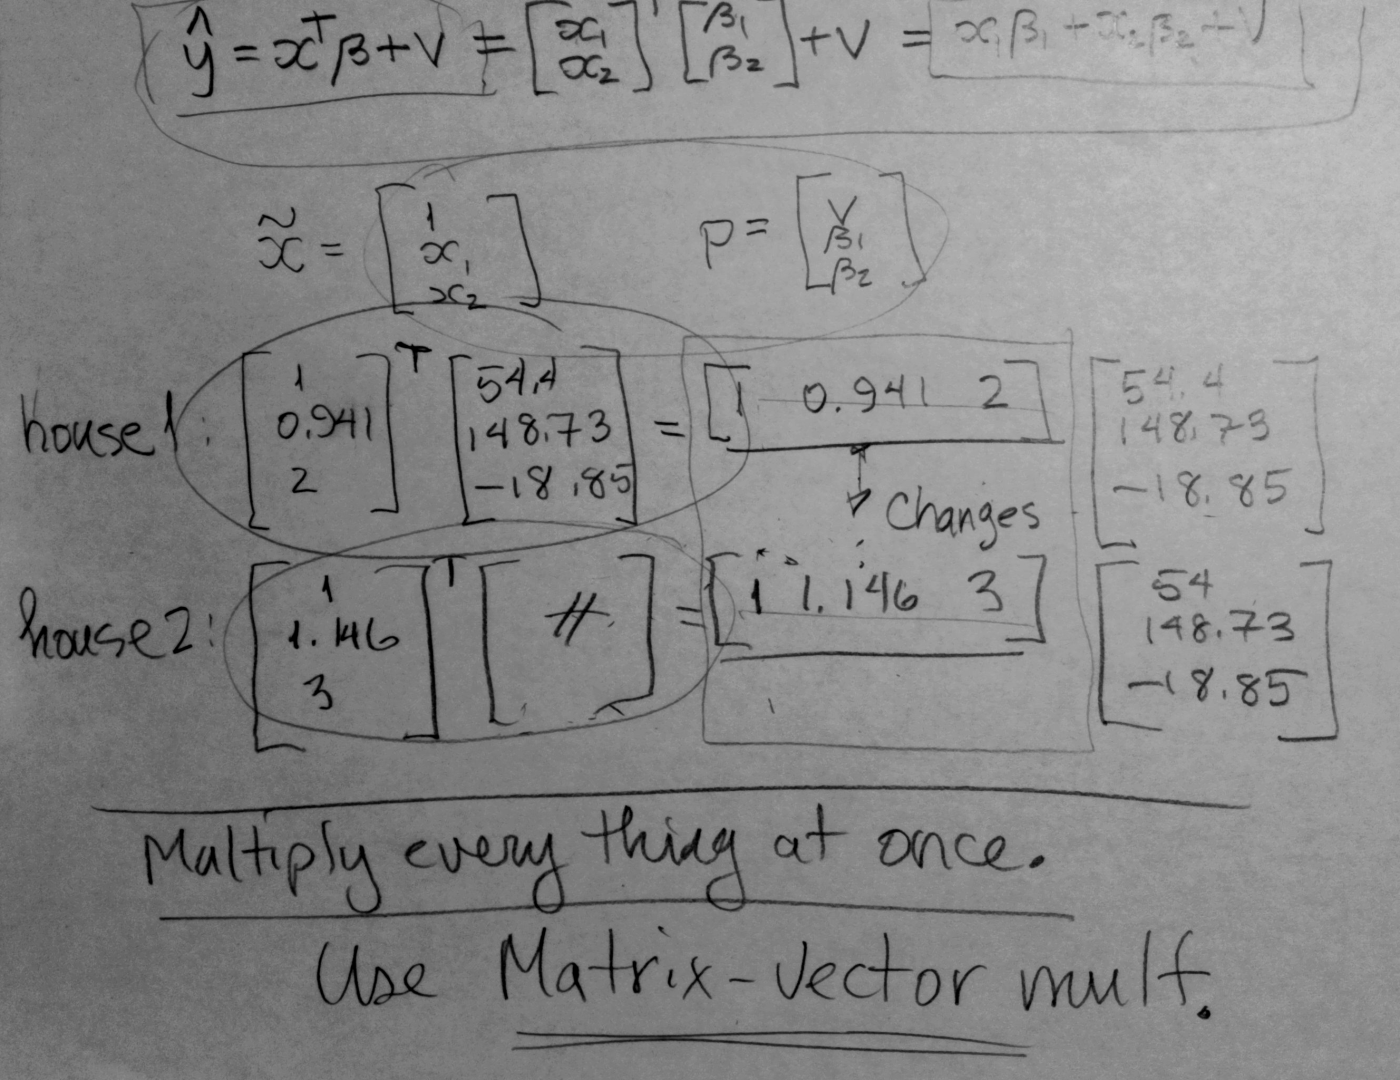 ŷ = xᵀβ + v = [x₁ x₂]ᵀ [β₁ β₂] + v = x₁β₁ + x₂β₂ + v
x̃ = [1 x₁ x₂] p = [v β₁ β₂]
house 1: [1 0.941 2]ᵀ [54.4 148.73 -18.85] = [1 0.941 2] [54.4 148.73 -18.85]
Changes
house 2: [1 1.146 3]ᵀ [#] = [1 1.146 3] [54 148.73 -18.85]
Multiply every thing at once.
Use Matrix-vector mult.